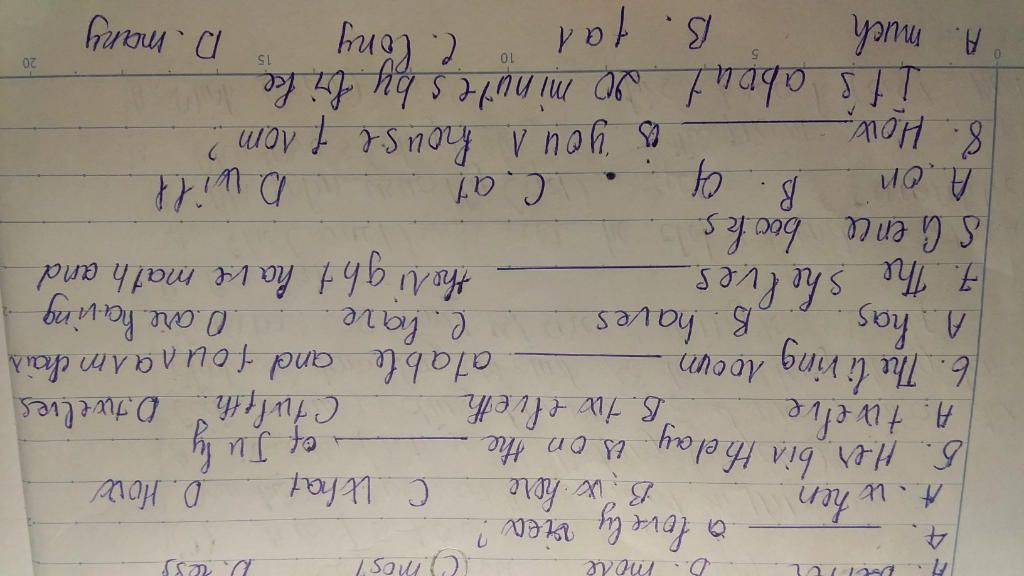 B. more C most D. less
4. ________ a lovely view?
A. when B. where C What D. How
5. Her birthday is on the ________ of July
A. twelve B. twelveth C twlfth. D. twelves
6. The living room ________ a table and four armchair
A. has B. haves C. have D. are having
7. The shelves ________ the right have math and
Science books
A. on B. of C. at D. with
8. How ________ is your house from?
It's about 20 minutes by bike
A. much B. far C. long D. many
0 5 10 15 20